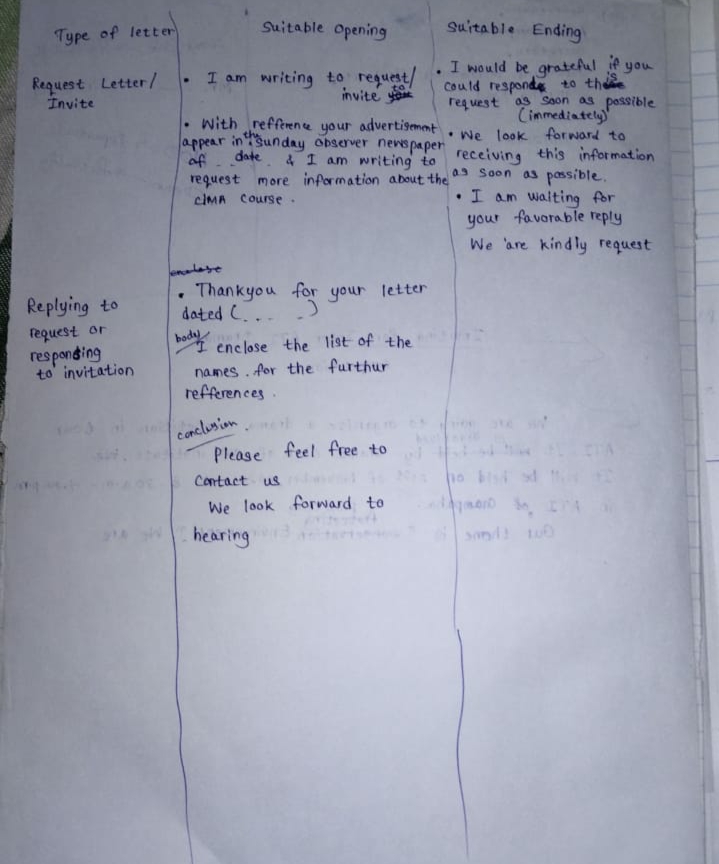 Type of letter
Suitable Opening
Suitable Ending
Request Letter/
Invite
• I am writing to request/
invite to
• With refference your advertisment
appear in the Sunday observer newspaper
of . . date . & I am writing to
request more information about the
CIMA course .
• I would be grateful if you
could respond to this
request as soon as possible
(immediately)
• We look forward to
receiving this information
as soon as possible.
• I am waiting for
your favorable reply
We are kindly request
Replying to
request or
responding
to invitation
enclose
• Thankyou for your letter
dated (. . . . -)
body
I enclose the list of the
names . for the furthur
refferences .
conclusion .
Please feel free to
contact us
We look forward to
hearing